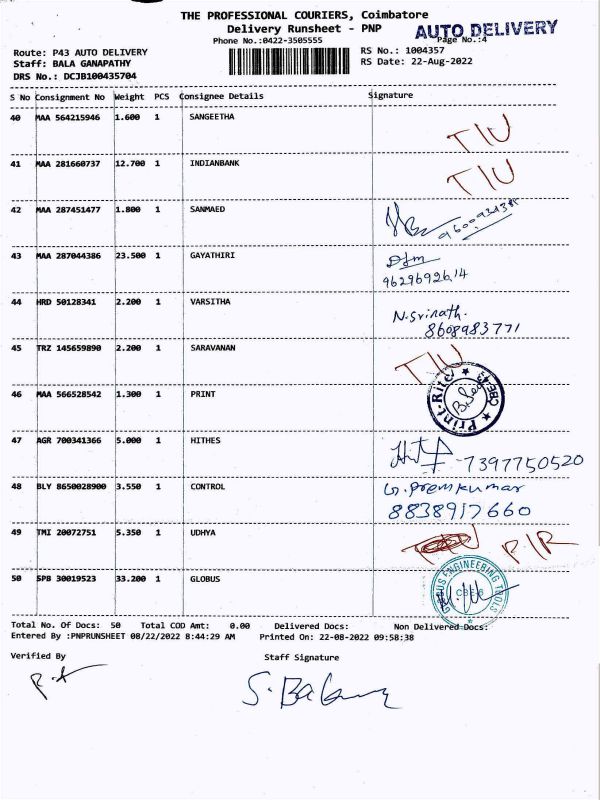 THE PROFESSIONAL COURIERS, Coimbatore
Delivery Runsheet - PNP
AUTO DELIVERY
Phone No.:0422-3505555
Page No.:4
Route: P43 AUTO DELIVERY
RS No.: 1004357
Staff: BALA GANAPATHY
RS Date: 22-Aug-2022
DRS No.: DCJB100435704
S No Consignment No Weight PCS Consignee Details Signature
40 MAA 564215946 1.600 1 SANGEETHA T/U
41 MAA 281660737 12.700 1 INDIANBANK T/U
42 MAA 287451477 1.800 1 SANMAED
43 MAA 287044386 23.500 1 GAYATHIRI
9629692614
44 HRD 50128341 2.200 1 VARSITHA N.Srinath.
8608983771
45 TRZ 145659890 2.200 1 SARAVANAN T/U
46 MAA 566528542 1.300 1 PRINT Print-Rite CBE-43
47 AGR 700341366 5.000 1 HITHES - 7397750520
48 BLY 8650028900 3.550 1 CONTROL G.Premkumar
8838917660
49 TMI 20072751 5.350 1 UDHYA P/R
50 SPB 30019523 33.200 1 GLOBUS GLOBUS ENGINEERING TOOLS CBE-6
Total No. Of Docs: 50 Total COD Amt: 0.00 Delivered Docs: Non Delivered Docs:
Entered By :PNPRUNSHEET 08/22/2022 8:44:29 AM Printed On: 22-08-2022 09:58:38
Verified By Staff Signature